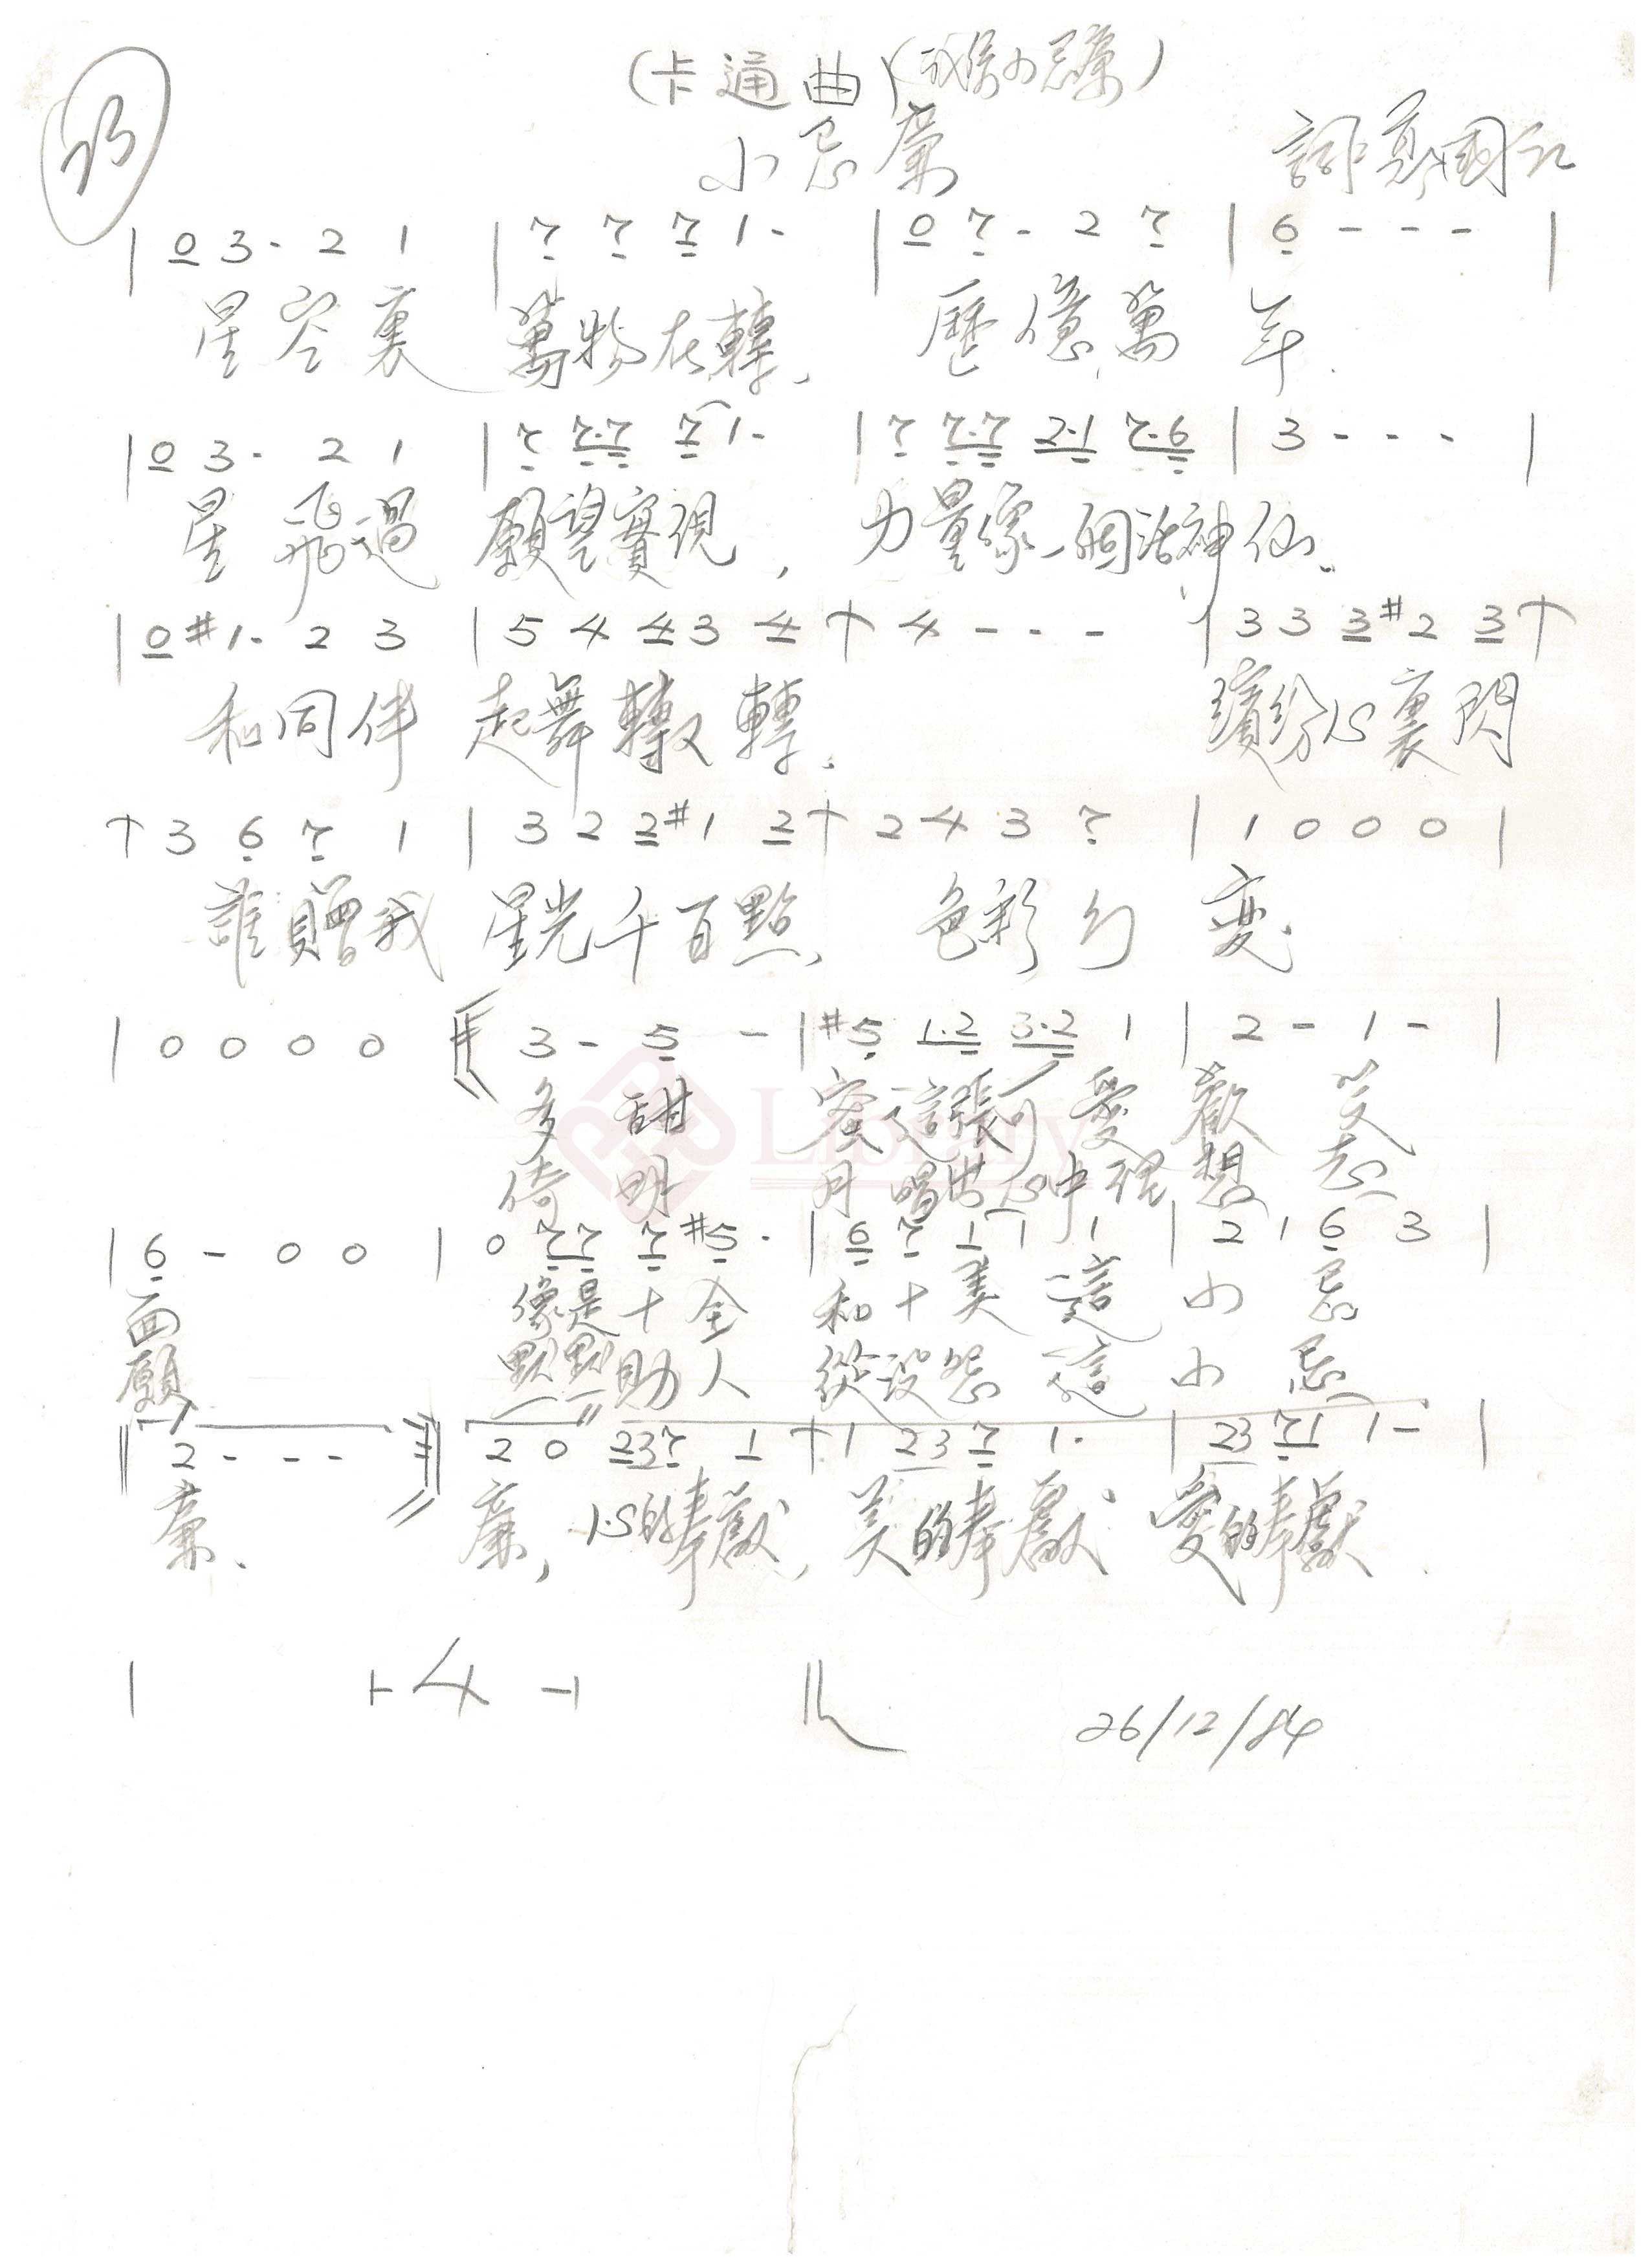 (卡通曲)(我係小忌廉)
小忌廉 詞 鄭國江
| 0 3 - 2 1 | 7 7 7 1 - | 0 7 - 2 7 | 6 - - - |
星空裏 萬物在轉、 歷億萬 年.
| 0 3 - 2 1 | 7 7·7 7 1 - | 7 7·7 2·1 7·6 | 3 - - - |
星飛過 願望實現, 力量像一個活神仙、
| 0 #1 - 2 3 | 5 4 4 3 4 | 4 - - - | 3 3 3 #2 3 |
和同伴 起舞轉又轉、 繽紛心裏閃
3 6 7 1 | 3 2 2 #1 2 | 2 4 3 7 | 1 0 0 0 |
誰贈我 星光千百點、 色彩幻 變
| 0 0 0 0 3 - 5 - | #5 1·2 3·2 1 | 2 - 1 - |
多 甜 蜜這張可愛 歡 笑
倚 明 月唱出心中理想 志
| 6 - 0 0 | 0 7 7 7 #5 · | 6 7 1 1 1 | 2 1 6 3 |
面 像是十全 和十美 這 小 忌
願 默默助人 從沒怨 這 小 忌
2 - - - 2 0 2 3 7 1 1 2 3 7 1 · | 2 3 7 1 1 - |
廉、 廉, 心的奉獻, 美的奉獻、 愛的奉獻.
| 4 ||
26/12/84
Library